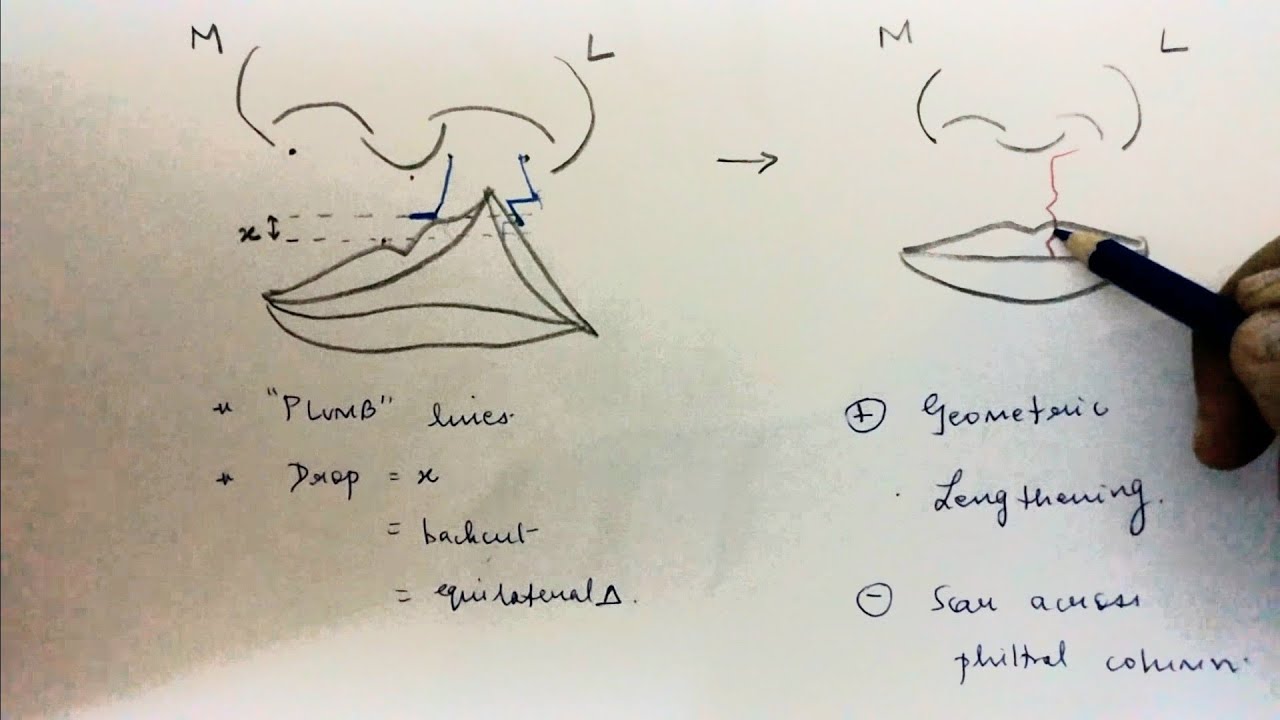 M
L
M
L
x
* "PLUMB" lines.
* Drop = x
= backcut
= equilateral Δ.
⊕ Geometric
Lengthening.
⊖ Scar across
philtral column.